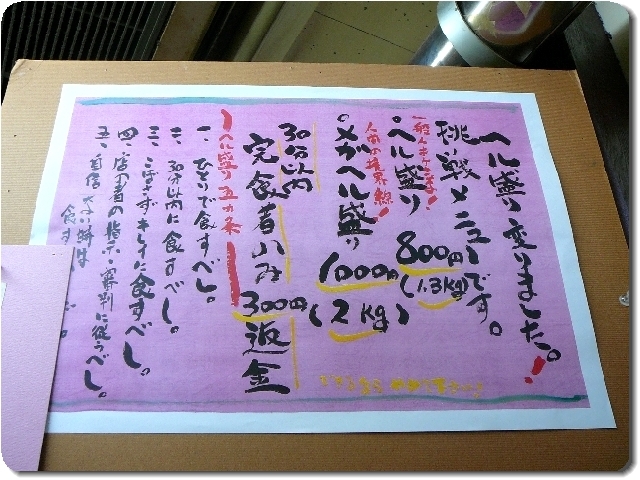 ヘル盛り変りました。!
挑戦メニューです。
一般人キケン!
・ヘル盛り 800円
(1.3kg)
人間の境界線!
・メガヘル盛り 1000円
(2kg)
30分以内
完食者のみ 300円返金
ヘル盛り五カ条
一、ひとりで食すべし。
二、30分以内に食すべし。
三、こぼさずキレイに食すべし。
四、店の者の指示・審判に従うべし。
五、自信
食す